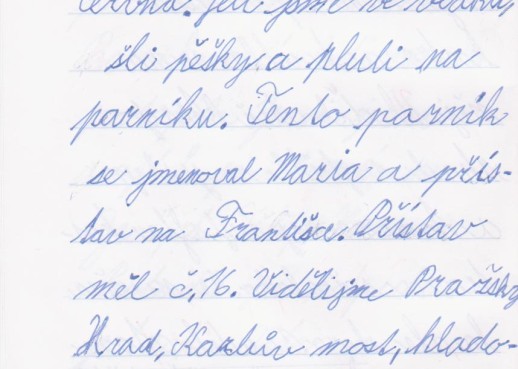 června. Jeli jsme ve vedru,
šli pěšky a pluli na
parníku. Tento parník
se jmenoval Maria a přís-
tav na Františce. Přístav
měl č. 16. Viděli jsme Pražský
Hrad, Karlův most, hlado-